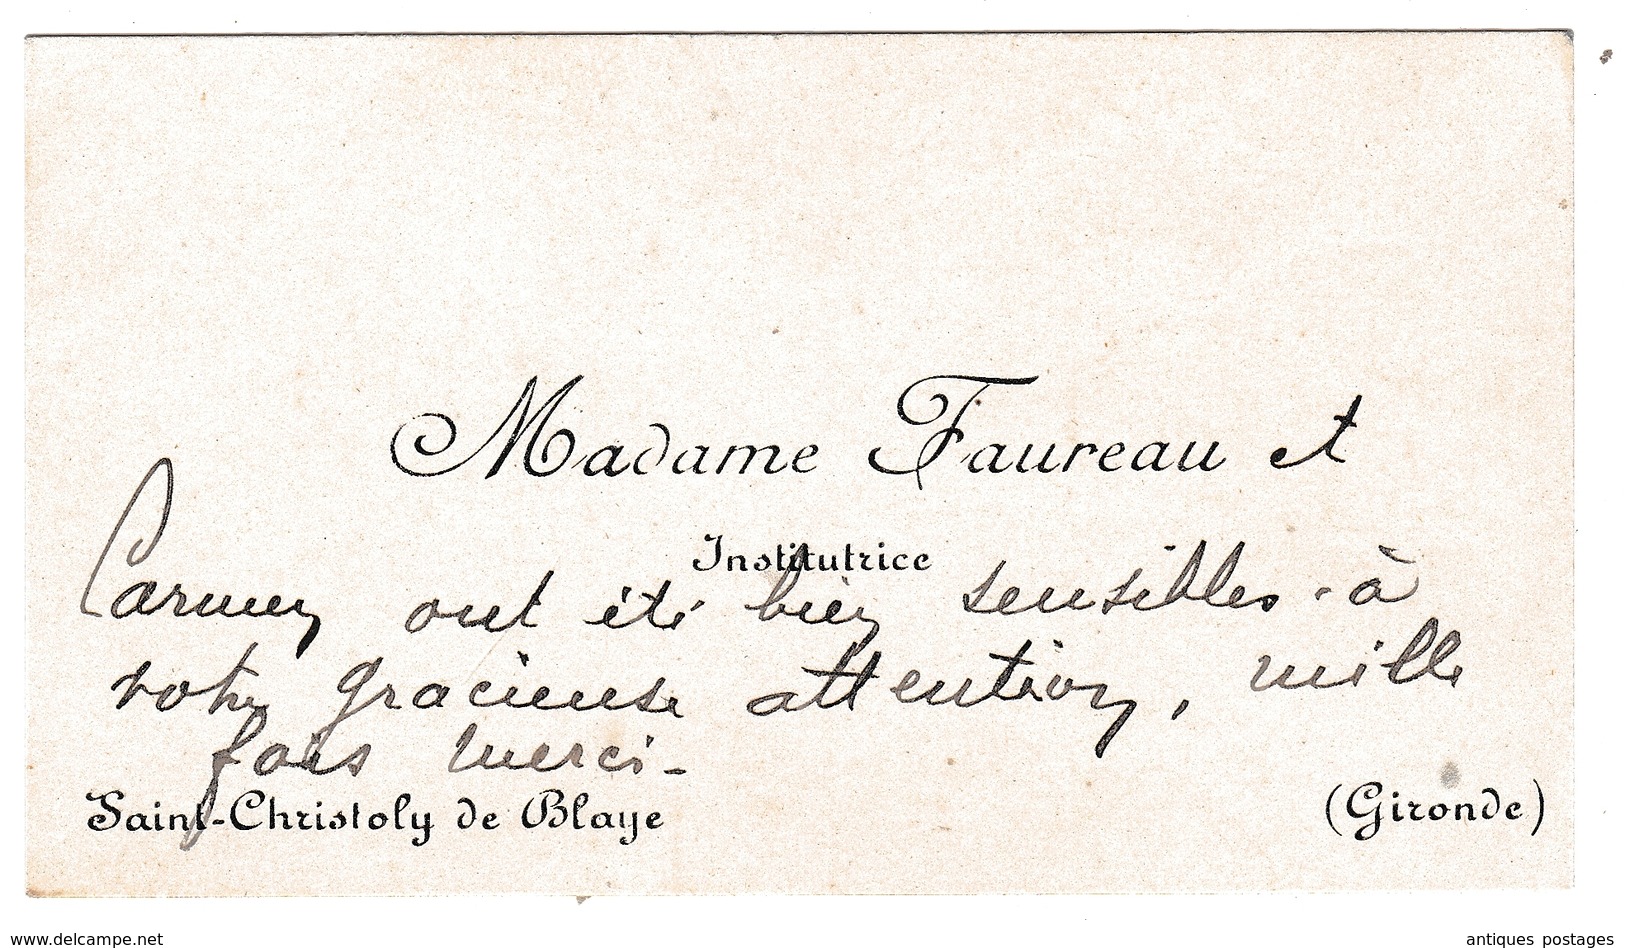 Madame Faureau et
Institutrice
Carmen ont été bien sensibles à
votre gracieuse attention, mille
fois merci -
Saint-Christoly de Blaye (Gironde)
www.delcampe.net antiques postages